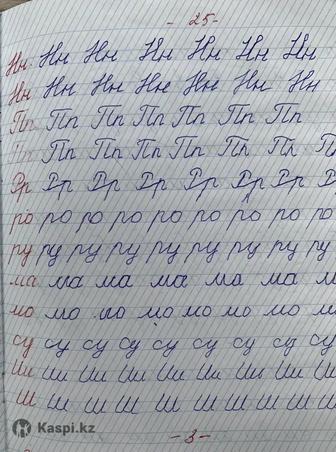 - 25 -
Нн Нн Нн Нн Нн Нн Нн
Нн Нн Нн Нн Нн Нн Нн
Пп Пп Пп Пп Пп Пп Пп
Пп Пп Пп Пп Пп Пп Пп П
Рр Рр Рр Рр Рр Рр Рр Р
ро ро ро ро ро ро ро ро ро
ру ру ру ру ру ру ру ру ру
ма ма ма ма ма ма м
мо мо мо мо мо мо мо м
су су су су су су су су су
Ии Ии Ии Ии Ии Ии Ии Ии Ии
Ш Ш Ш Ш Ш Ш Ш Ш Ш
Kaspi.kz
- 3 -